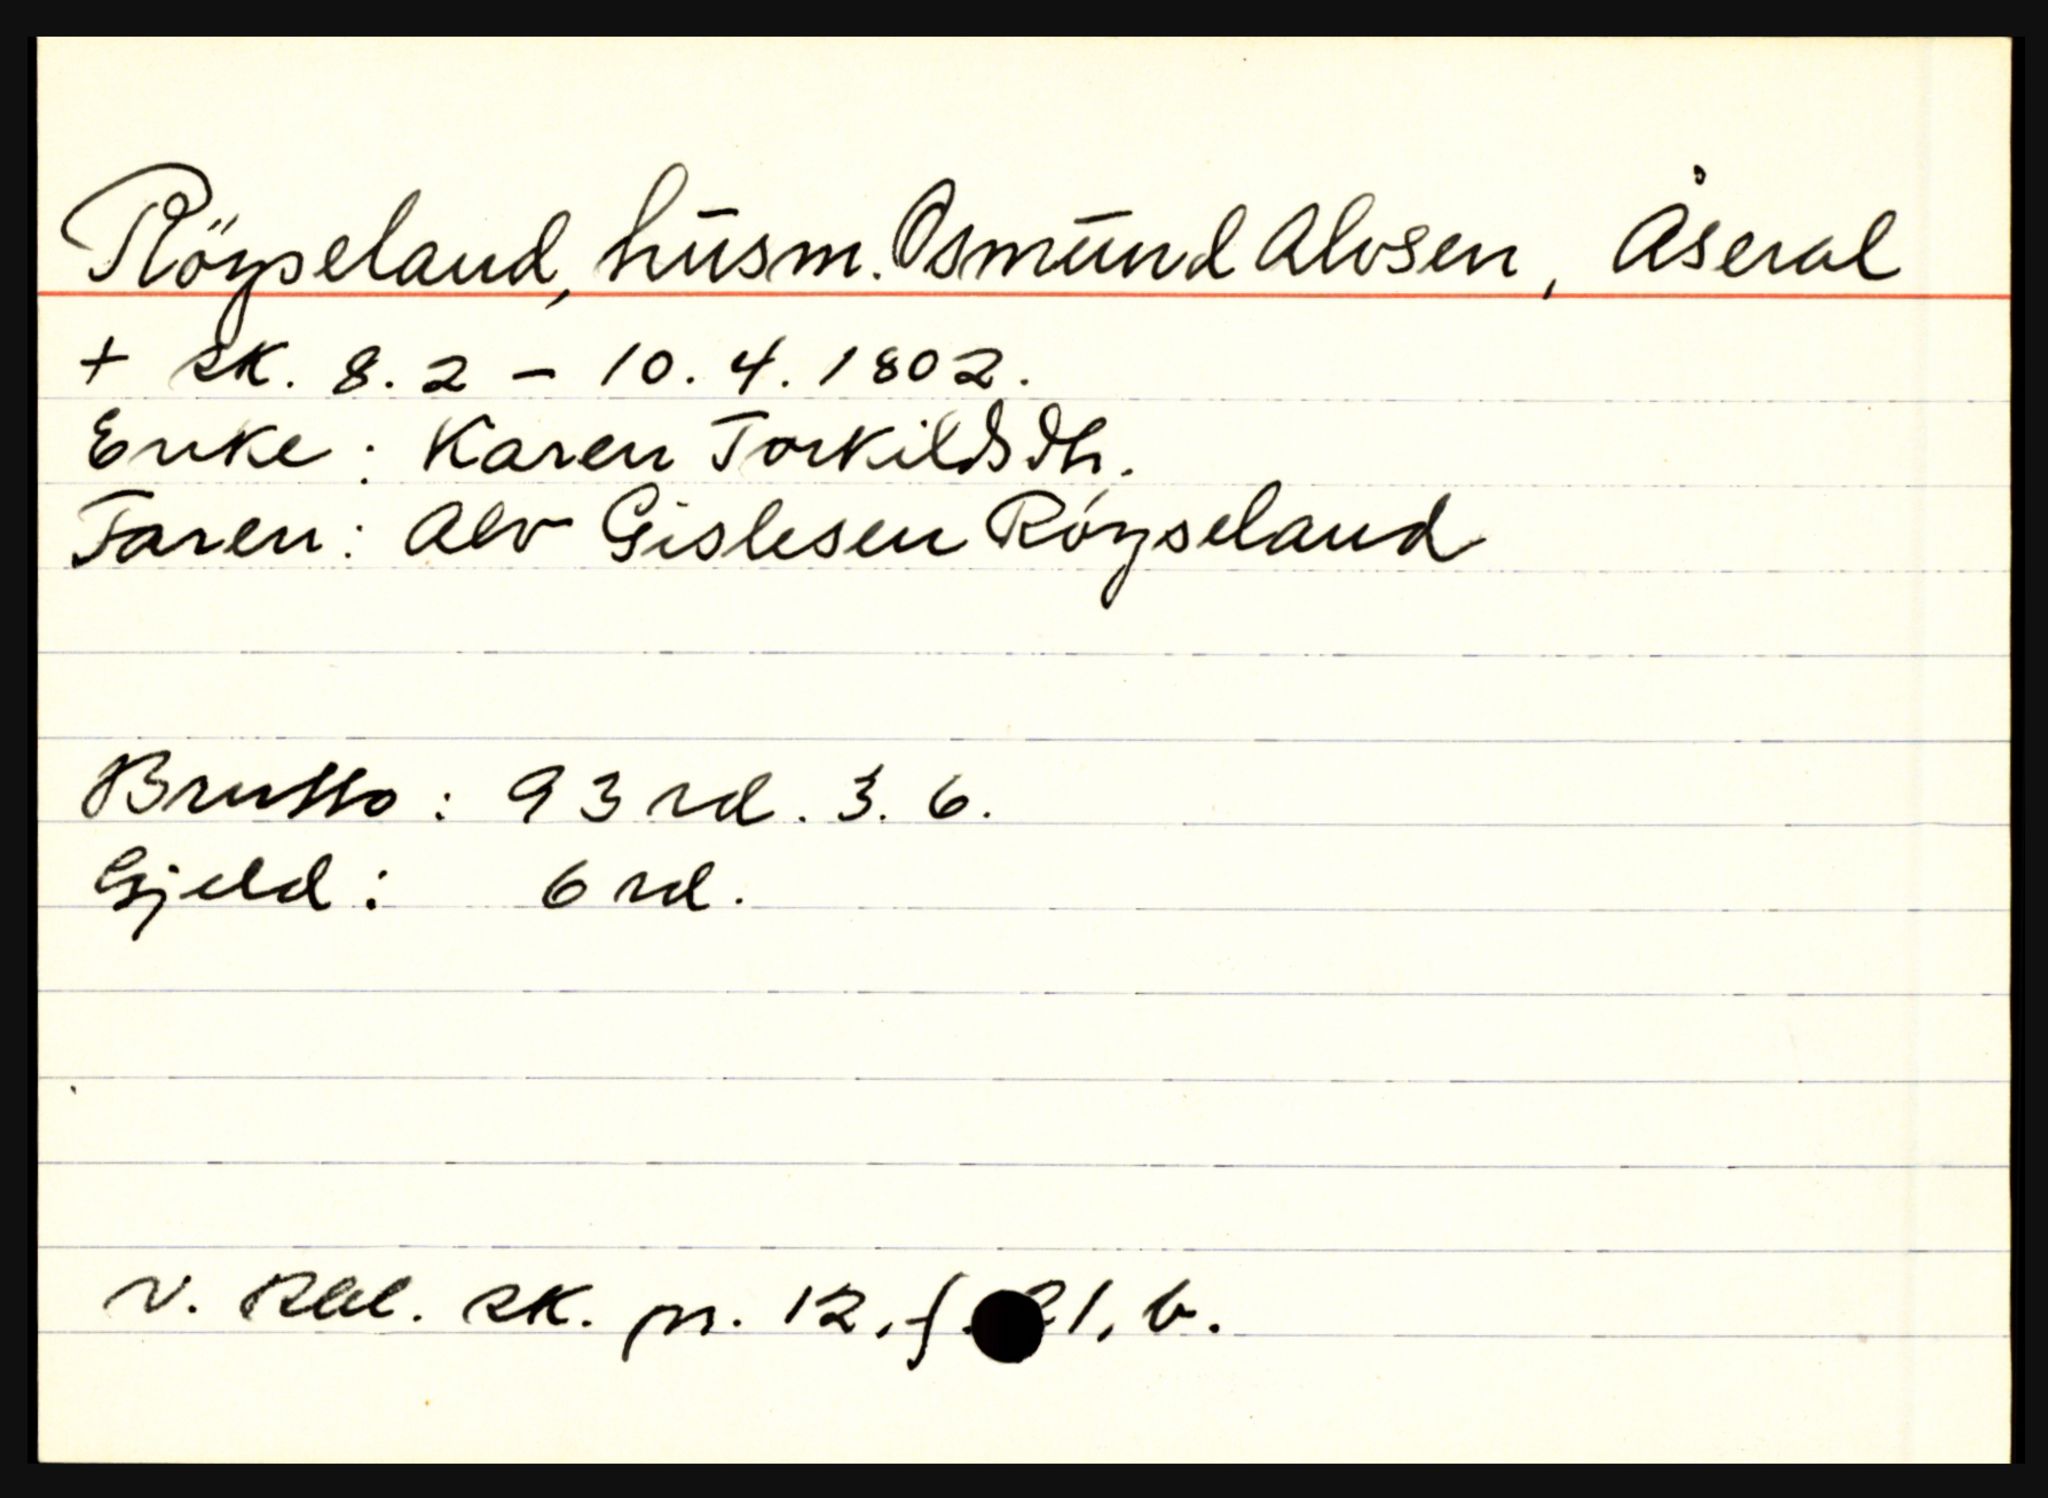 Röyseland, husm. Osmund Alvsen, Åseral
+ sk. 8.2 - 10.4.1802.
Enke: Karen Torkildsdtr.
Faren: Alv Gislesen Röyseland
Brutto: 93 rd. 3. 6.
Gjeld: 6 rd.
v. Rbl. sk. pr. 12, f. 21, b.